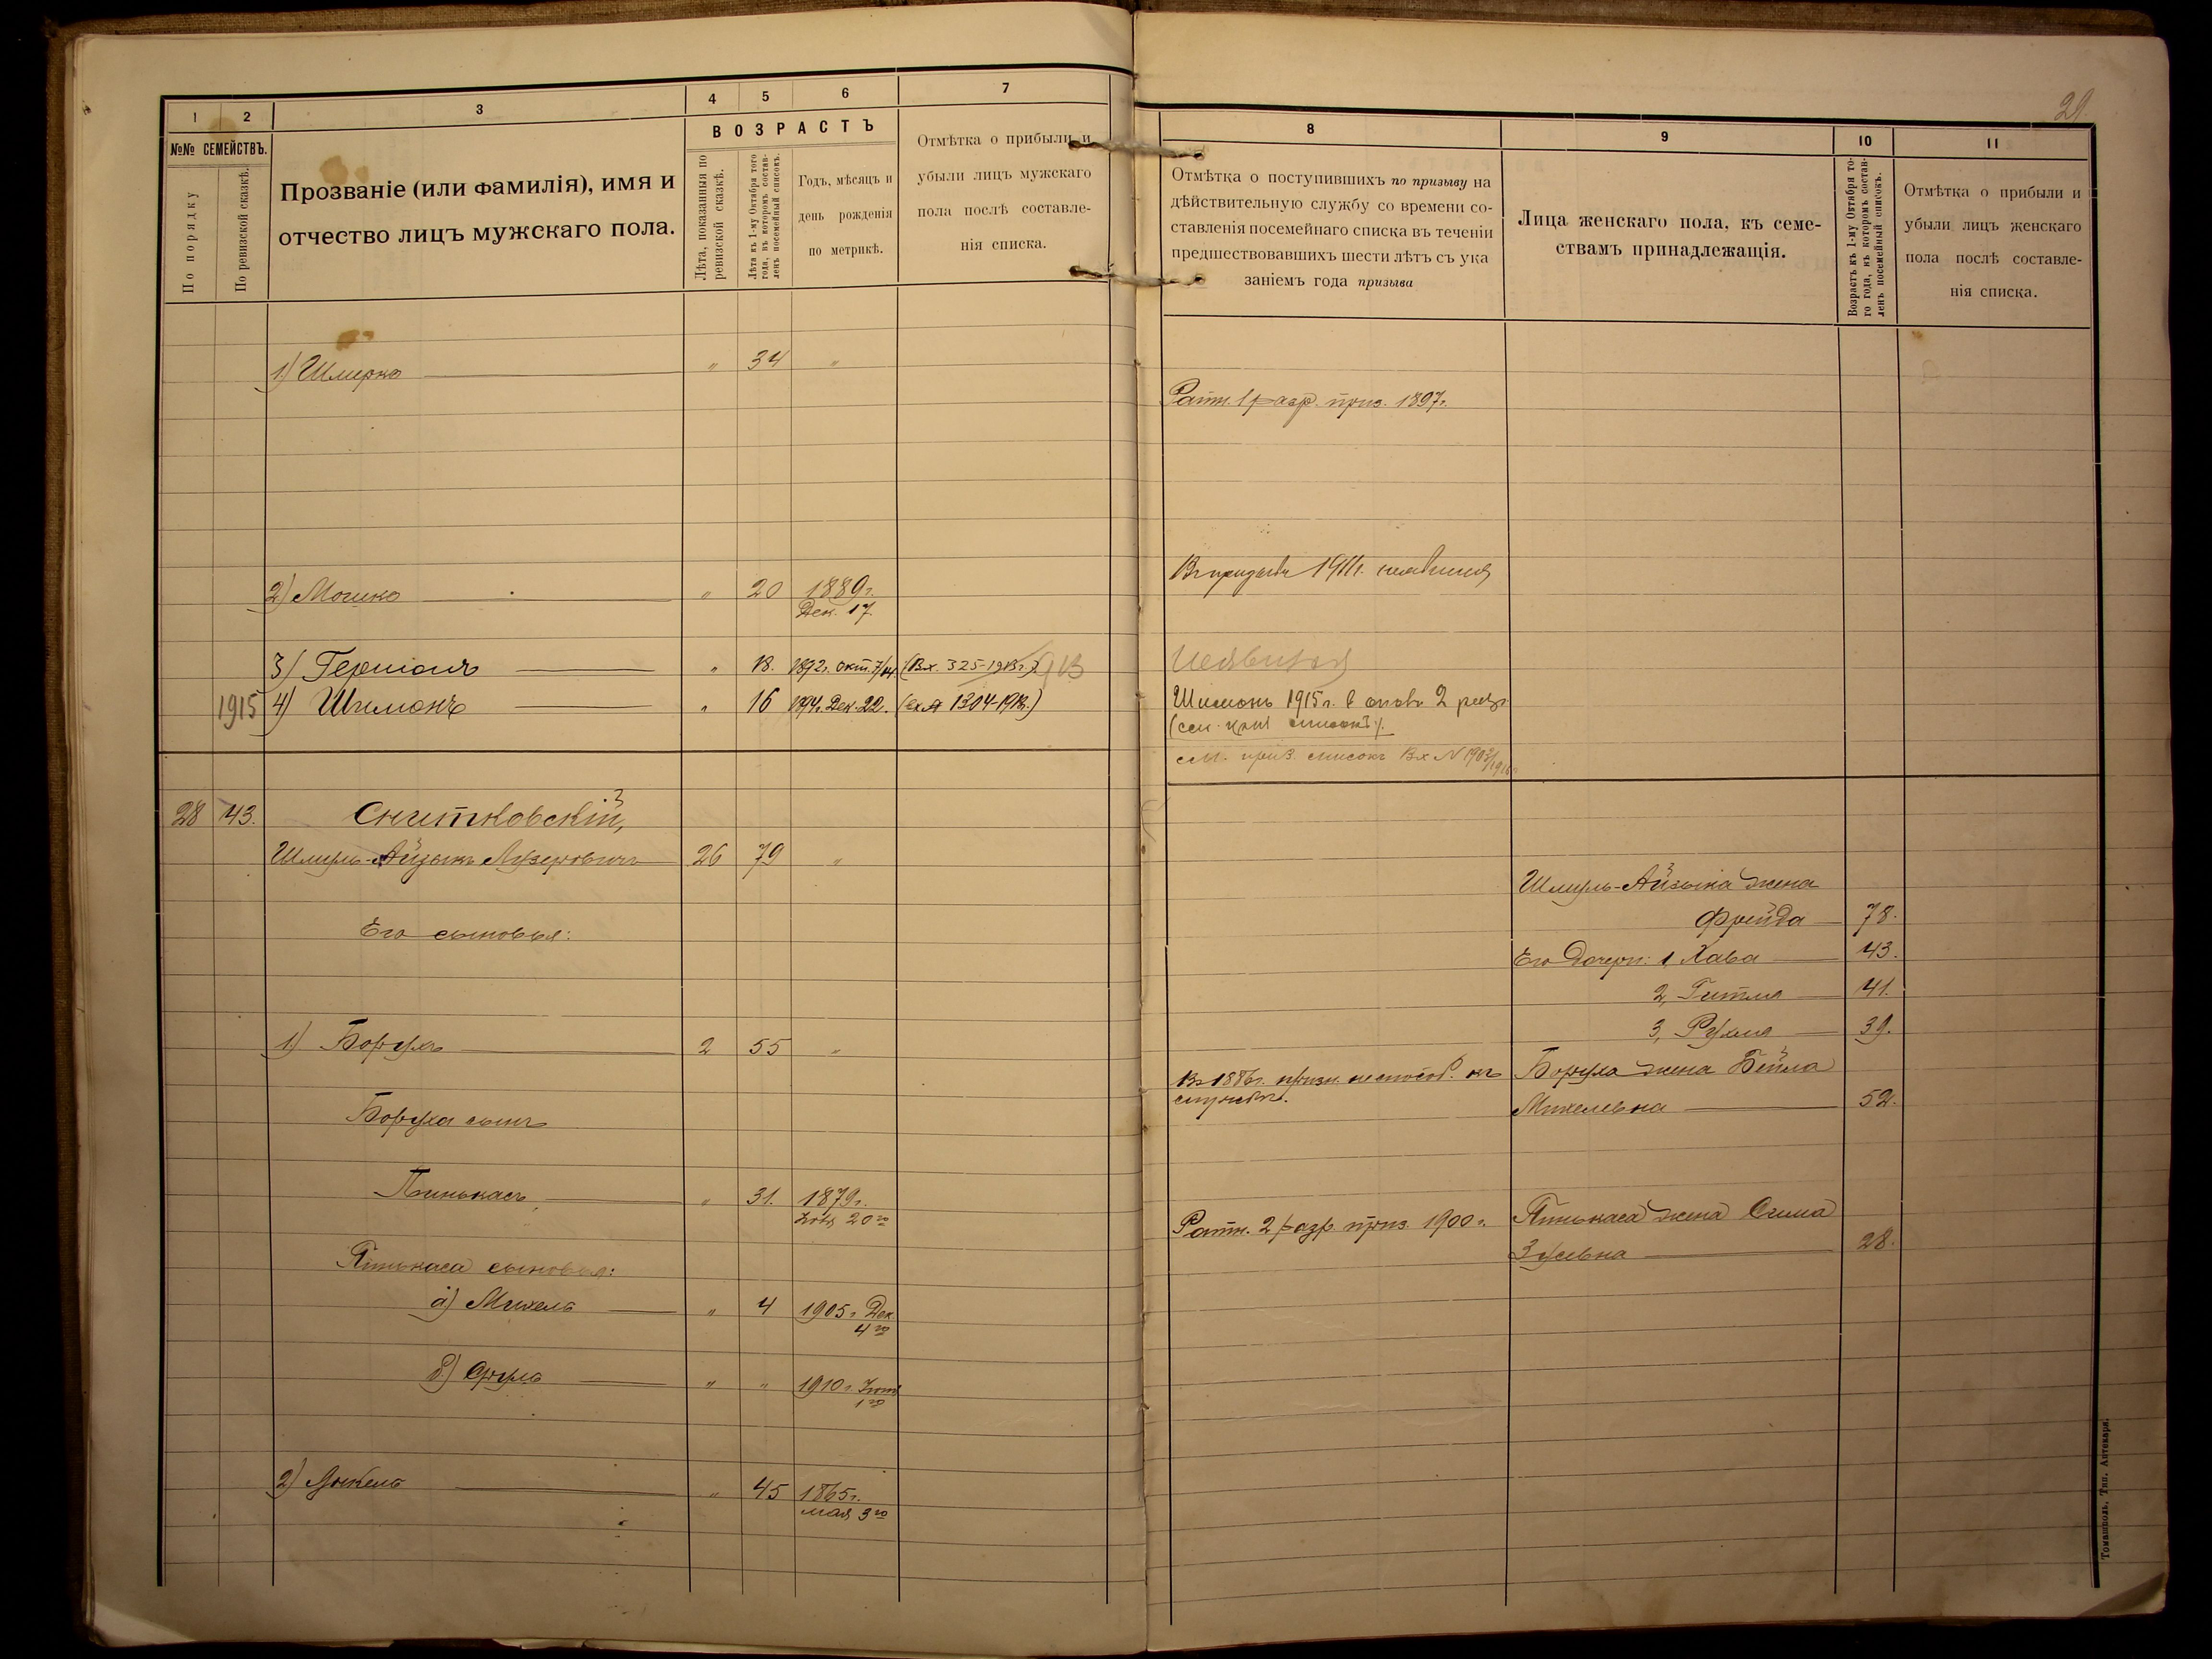 1 2 3 4 5 6 7
№№ СЕМЕЙСТВЪ.
По порядку
По ревизской сказкѣ.
Прозваніе (или фамилія), имя и
отчество лицъ мужскаго пола.
ВОЗРАСТЪ
Лѣта, показанныя по
ревизской сказкѣ.
Лѣта къ 1-му Октября того
года, въ которомъ состав-
ленъ посемейный списокъ.
Годъ, мѣсяцъ и
день рожденія
по метрикѣ.
Отмѣтка о прибыли и
убыли лицъ мужскаго
пола послѣ составле-
нія списка.
1) Шмерко " 34 "
2) Мошко " 20 1889 г.
Дек. 17.
3) Гершонъ " 18. 1892 г. окт. 7/14. (Вх. 325-1913 г.)
1915 4) Шимонъ " 16 1894 г. Дек. 22. 
28 43. Снитковскій,
Шмуль-Айзыкъ Лузеровичъ 26 79 "
Его сыновья:
1) Борухъ 2 55 "
Боруха сынъ
Пинькасъ " 31. 1879 г.
20го
Пинькаса сыновья:
а) Михель " 4 1905 г. Дек.
4го
б) Сруль " " 1910 г.
1го
2) Янкель " 45 1865 г.
мая 3го
29
8 9 10 11
Отмѣтка о поступившихъ по призыву на
дѣйствительную службу со времени со-
ставленія посемейнаго списка въ теченіи
предшествовавшихъ шести лѣтъ съ ука
заніемъ года призыва
Лица женскаго пола, къ семе-
ствамъ принадлежащія.
Возрастъ къ 1-му Октября то-
го года, въ которомъ состав-
ленъ посемейный списокъ.
Отмѣтка о прибыли и
убыли лицъ женскаго
пола послѣ составле-
нія списка.
Ратн. 1 разр. приз. 1897 г.
Въ призывѣ 1911 г. неявился
Неявился
Шимонъ 1915 г. в 2 разр
см. приз. списокъ Вх №
Шмуль-Айзыка жена
Фрейда 78.
Его дочери: 1 Хава 43.
2, Гитля 41.
3, Рухля 39.
Въ 1886 г. призн. неспособ. къ
службѣ.
Боруха жена Бейла
Михелевна 52.
Ратн. 2 разр приз. 1900 г.
Пинькаса жена Сима
Зусевна 28.
Томашполь, Тип. Аптекаря.